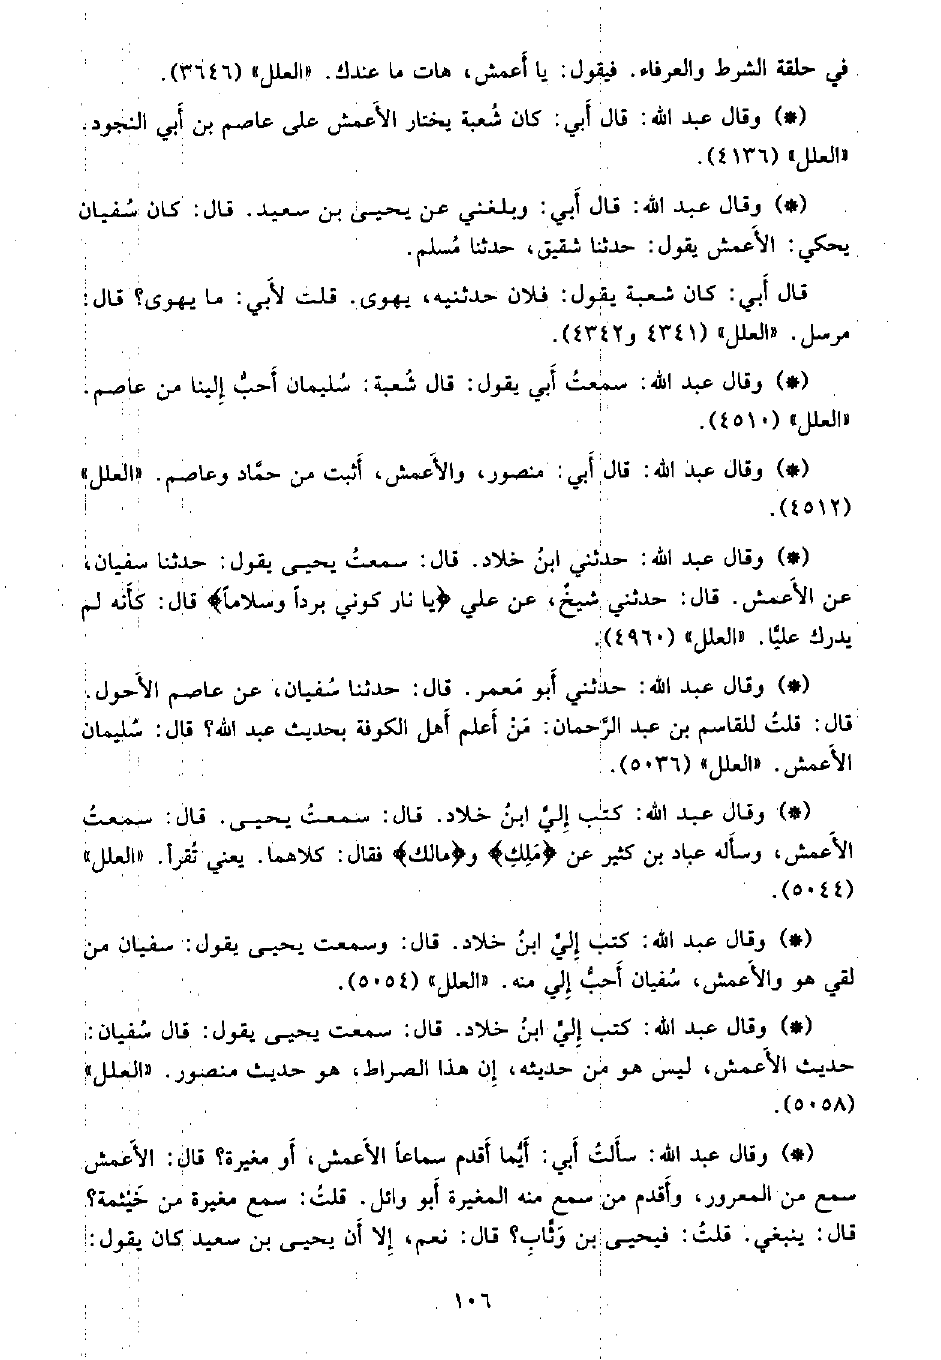 في حلقة الشرط والعرفاء. فيقول: يا أعمش، هات ما عندك. «العلل» (٣٦٤٦).
(*) وقال عبد الله: قال أبي: كان شُعبة يختار الأَعمش على عاصم بن أبي النجود.
«العلل» (٤١٣٦).
(*) وقال عبد الله: قال أَبي: وبلغني عن يحيى بن سعيد. قال: كان سُفيان
يحكي: الأَعمش يقول: حدثنا شقيق، حدثنا مُسلم.
قال أَبي: كان شعبة يقول: فلان حدثنيه، يهوى. قلت لأبي: ما يهوى؟ قال:
مرسل. «العلل» (٤٣٤١ و٤٣٤٢).
(*) وقال عبد الله: سمعتُ أَبي يقول: قال شُعبة: سُليمان أَحبُّ إلينا من عاصم.
«العلل» (٤٥١٠).
(*) وقال عبد الله: قال أَبي: منصور، والأَعمش، أَثبت من حمَّاد وعاصم. «العلل»
(٤٥١٢).
(*) وقال عبد الله: حدثني ابنُ خلاد. قال: سمعتُ يحيى يقول: حدثنا سفيان،
عن الأَعمش. قال: حدثني شيخٌ، عن علي ﴿يا نار كوني برداً وسلاماً﴾ قال: كأَنه لم
يدرك عليًّا. «العلل» (٤٩٦٠).
(*) وقال عبد الله: حدثني أَبو مَعمر. قال: حدثنا سُفيان، عن عاصم الأحول.
قال: قلتُ للقاسم بن عبد الرَّحمان: مَنْ أَعلم أَهل الكوفة بحديث عبد الله؟ قال: سُليمان
الأَعمش. «العلل» (٥٠٣٦).
(*) وقال عبد الله: كتب إِليَّ ابنُ خلاد. قال: سمعتُ يحيى. قال: سمعتُ
الأَعمش، وسأله عباد بن كثير عن ﴿مَلِكِ﴾ و﴿مالك﴾ فقال: كلاهما. يعني تُقرأ. «العلل»
(٥٠٤٤).
(*) وقال عبد الله: كتب إِليَّ ابنُ خلاد. قال: وسمعت يحيى يقول: سفيان من
لقي هو والأَعمش، سُفيان أَحبُّ إِلي منه. «العلل» (٥٠٥٤).
(*) وقال عبد الله: كتب إِليَّ ابنُ خلاد. قال: سمعت يحيى يقول: قال سُفيان:
حديث الأَعمش، ليس هو من حديثه، إِن هذا الصراط، هو حديث منصور. «العلل»
(٥٠٥٨).
(*) وقال عبد الله: سألتُ أَبي: أَيُّما أَقدم سماعاً الأَعمش، أَو مغيرة؟ قال: الأَعمش
سمع من المعرور، وأَقدم من سمع منه المغيرة أَبو وائل. قلتُ: سمع مغيرة من خَيْثمة؟
قال: ينبغي. قلتُ: فيحيى بن وَثَّابِ؟ قال: نعم، إِلا أَن يحيى بن سعيد كان يقول:
١٠٦